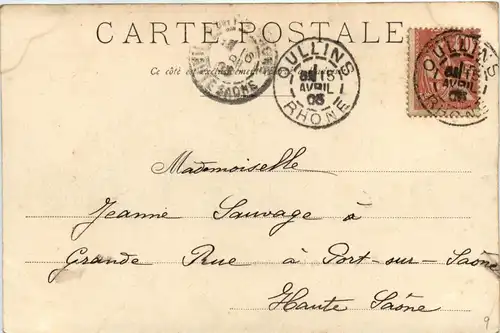 CARTE POSTALE
Ce côté est exclusivement
OULLINS
15
AVRIL
03
RHONE
SAONE
OULLINS
15
AVRIL
03
RHONE
Mademoiselle
Jeanne Sauvage à
Grande Rue à Port-sur-Saône
Haute Saône
9